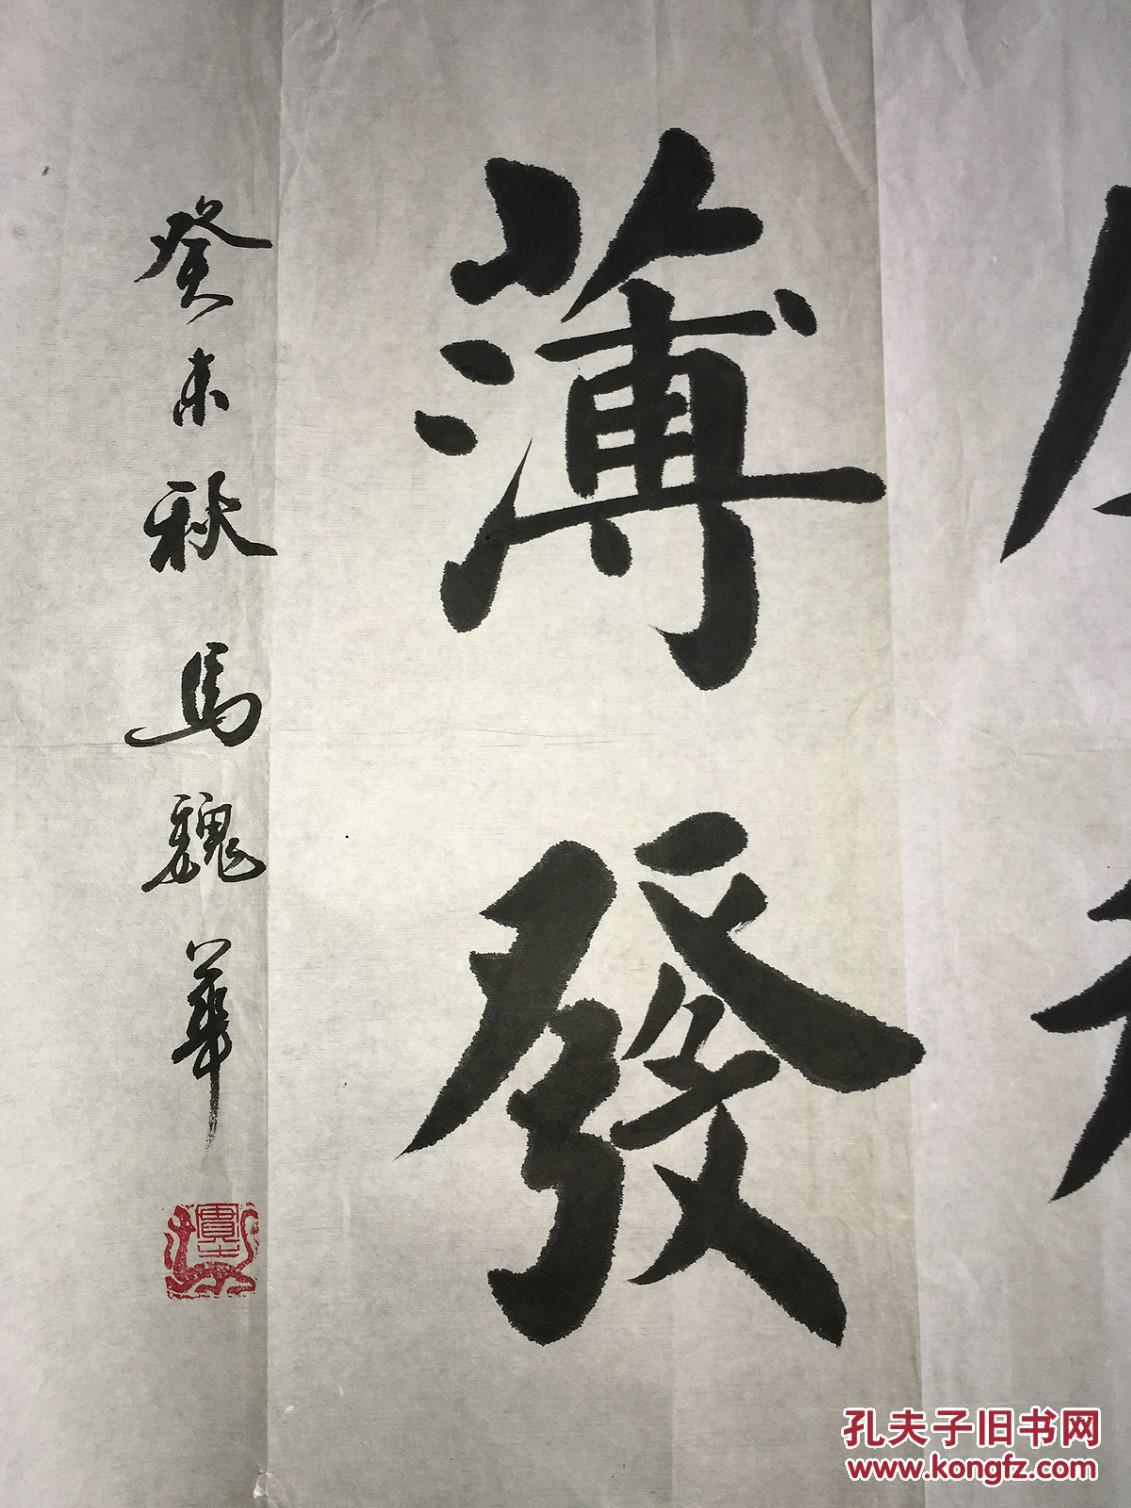 薄發
癸未秋馬魏華
孔夫子旧书网
www.kongfz.com